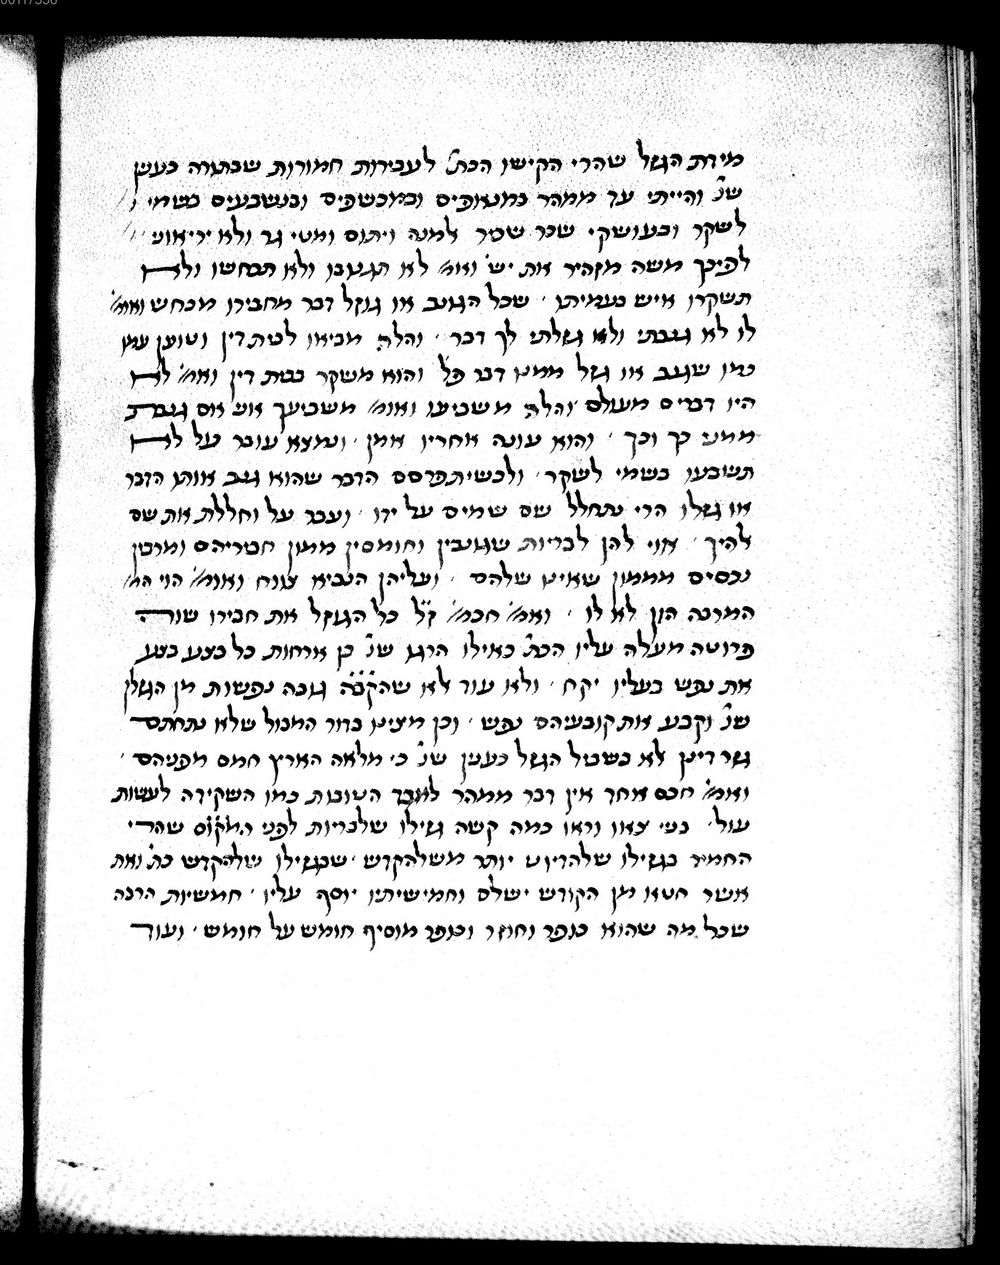 מידת הגזל שהרי הקישו הכת׳ לעבירות חמורות שבתורה כענין
שנ׳ והייתי עד ממהר במנאפים ובמכשפים ובנשבעים בשמי
לשקר ובעושקי שכר שכיר אלמנה ויתום ומטי גר ולא יריאוני
לפיכך משה מזהיר את יש׳ ואו׳ לא תגנובו ולא תכחשו ולא
תשקרו איש בעמיתו שכל הגונב או גוזל דבר מחבירו מכחש ואומ׳
לו לא גנבתי ולא גזלתי לך דבר והלה מביאו לבית דין וטוען עמו
כמו שגנב או גזל ממנו דבר פל׳ והוא משקר בבית דין ואומ׳ לא
היו דברים מעולם והלה משביעו ואומ׳ משביעך אני אם גנבת
ממני כך וכך והוא עונה אחריו אמן ונמצא עובר על לא
תשבעו בשמי לשקר ולכשיתפרסם הדבר שהוא גנב אותו הדבר
או גזלו הרי נתחלל שם שמים על ידו ועבר על וחללת את שם
אלהיך אוי להן לבריות שגונבין וחומסין ממון חביריהם ומרבין
נכסים מממון שאינו שלהם ועליהן הנביא צווח ואומ׳ הוי המ׳
המרבה הון לא לו ואמ׳ חכמ׳ ז״ל כל הגוזל את חבירו שוה
פרוטה מעלה עליו הכת׳ כאילו הרגו שנ׳ כן ארחות כל בצע בצע
את נפש בעליו יקח ולא עוד אלא שהקב״ה גובה נפשות מן הגזלן
שנ׳ וקבע את קובעיהם נפש וכן מצינו בדור המבול שלא נתחתם
גזר דינן אלא בשביל הגזל כענין שנ׳ כי מלאה הארץ חמס מפניהם
ואומ׳ חכם אחד אין דבר ממהר לאבד הטובות כמו השקידה לעשות
עול בני צאו וראו כמה קשה גזילו שלבריות לפני המקום שהרי
החמיר בגזילו שלהדיוט יותר משלהקדש שבגזילו שלהקדש כת׳ ואת
אשר חטא מן הקודש ישלם וחמישיתיו יוסף עליו חמשיות הרבה
שכל מה שהוא כופר וחוזר וכופר מוסיף חומש על חומש ועוד